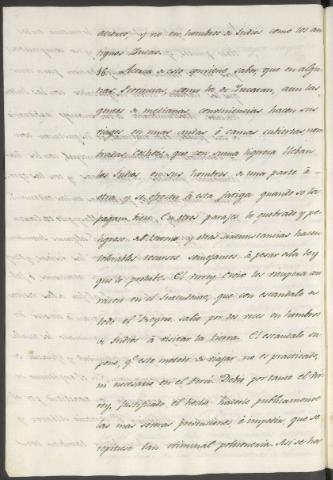 aciones, y no en hombros de Indios como los an
tiguos Incas.
36. Acerca de esto conviene saber, que en algu
nas Provincias, como la de Yucatan, aun las
gentes de medianas conveniencias hacen sus
viages en unas andas ó camas cubiertas, nom
bradas que con suma ligereza llevan
los Indios en sus hombros, de una parte á
otra, y se ofrecen á esta fatiga quando se les
paga bien. En otros parajes, lo quebrado y pe
ligroso del terreno, y otras circunstancias hacen
tolerables recursos semejantes á pesar de la ley
que lo prohibe. El nuevo Inca los recopera un
en el que con escandalo de
todo el Reyno, salio por dos veces en hombros
de Indios á visitar la tierra. El escandalo su
pone, qe. este metodo de viajar, no es practicado,
ni necesario en el Perú. Debio por tanto el Vi
rey, justificado el hecho, hacerle publicamente
las mas severas prevenciones, é impedir que se
repitiese tan criminal Asi se hac